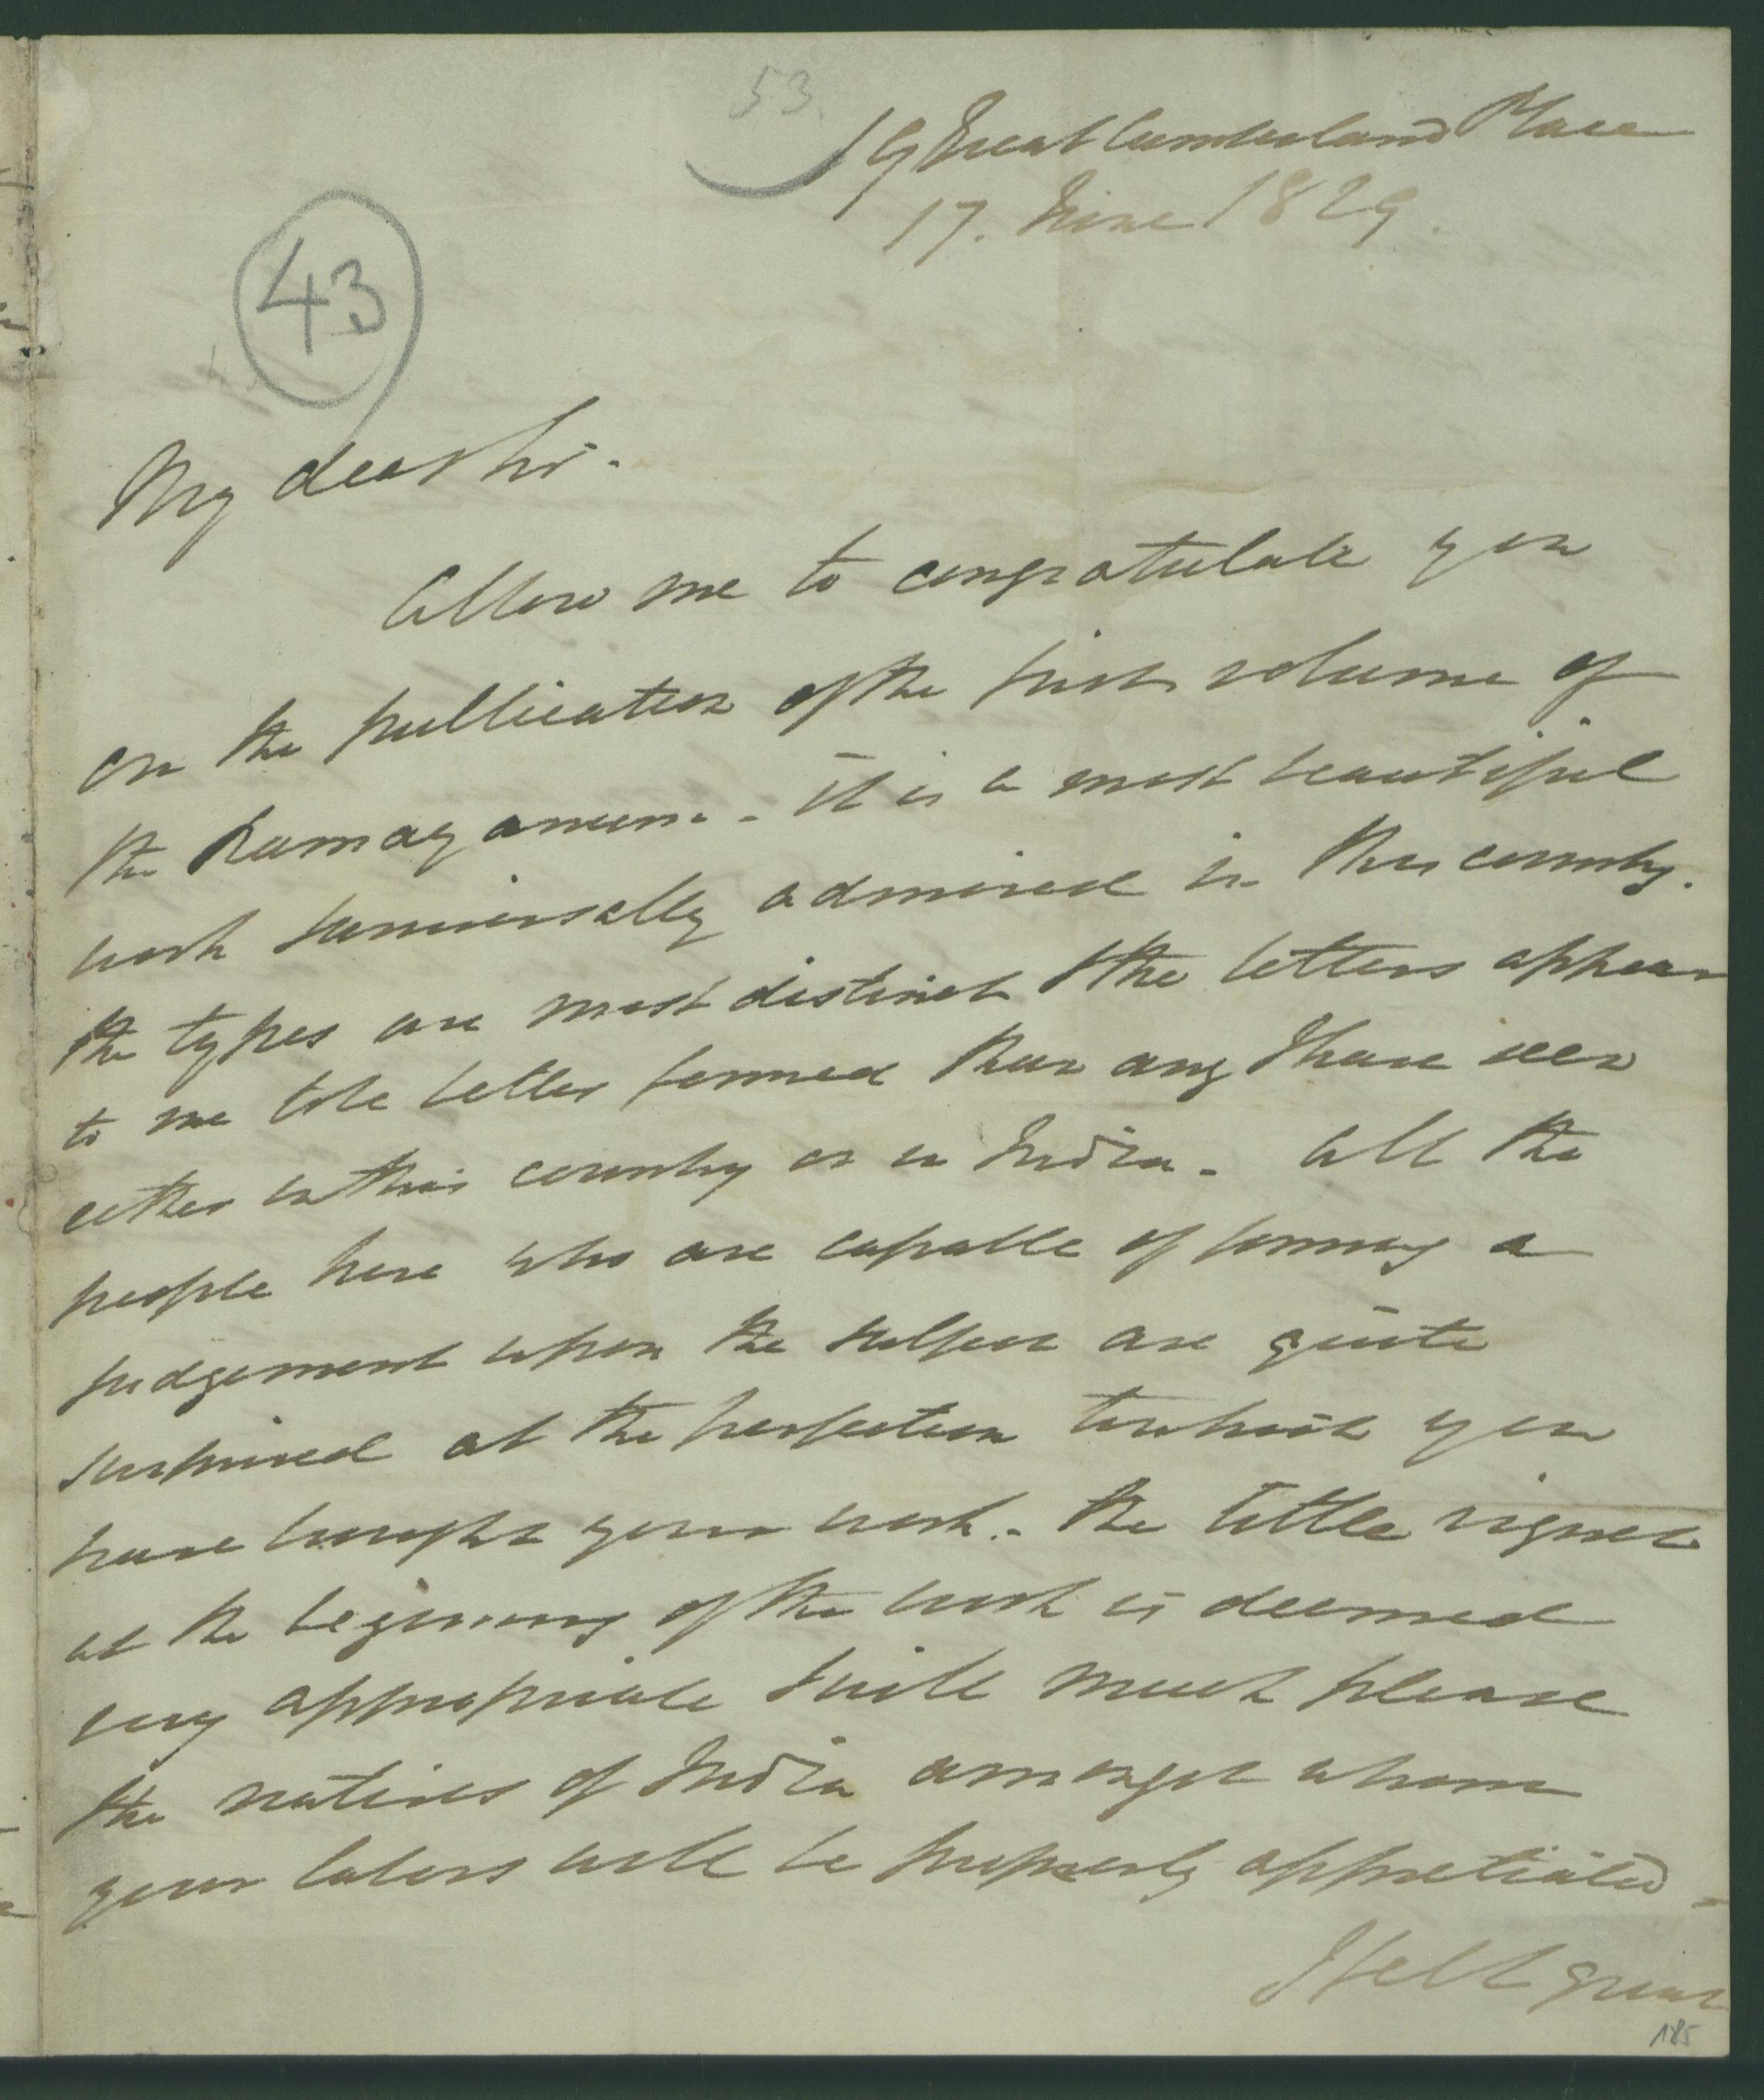 53
19 Great Cumberland Place
17. June 1829.
43
My dear Sir.
Allow me to congratulate you
on the publication of the first volume of
the Ramayanum. - It is a most beautiful
work & universally admired in this country.
the types are most distinct & the letters appear
to me to be better formed than any I have seen
either in this country or in India. All the
people here who are capable of forming a
judgement upon the subject are quite
surprised at the perfection to which you
have brought your work. - the little vignet
at the beginning of the work is deemed
very appropriate & will much please
the natives of India amongst whom
your labors will be properly appretiated -
I felt great
185